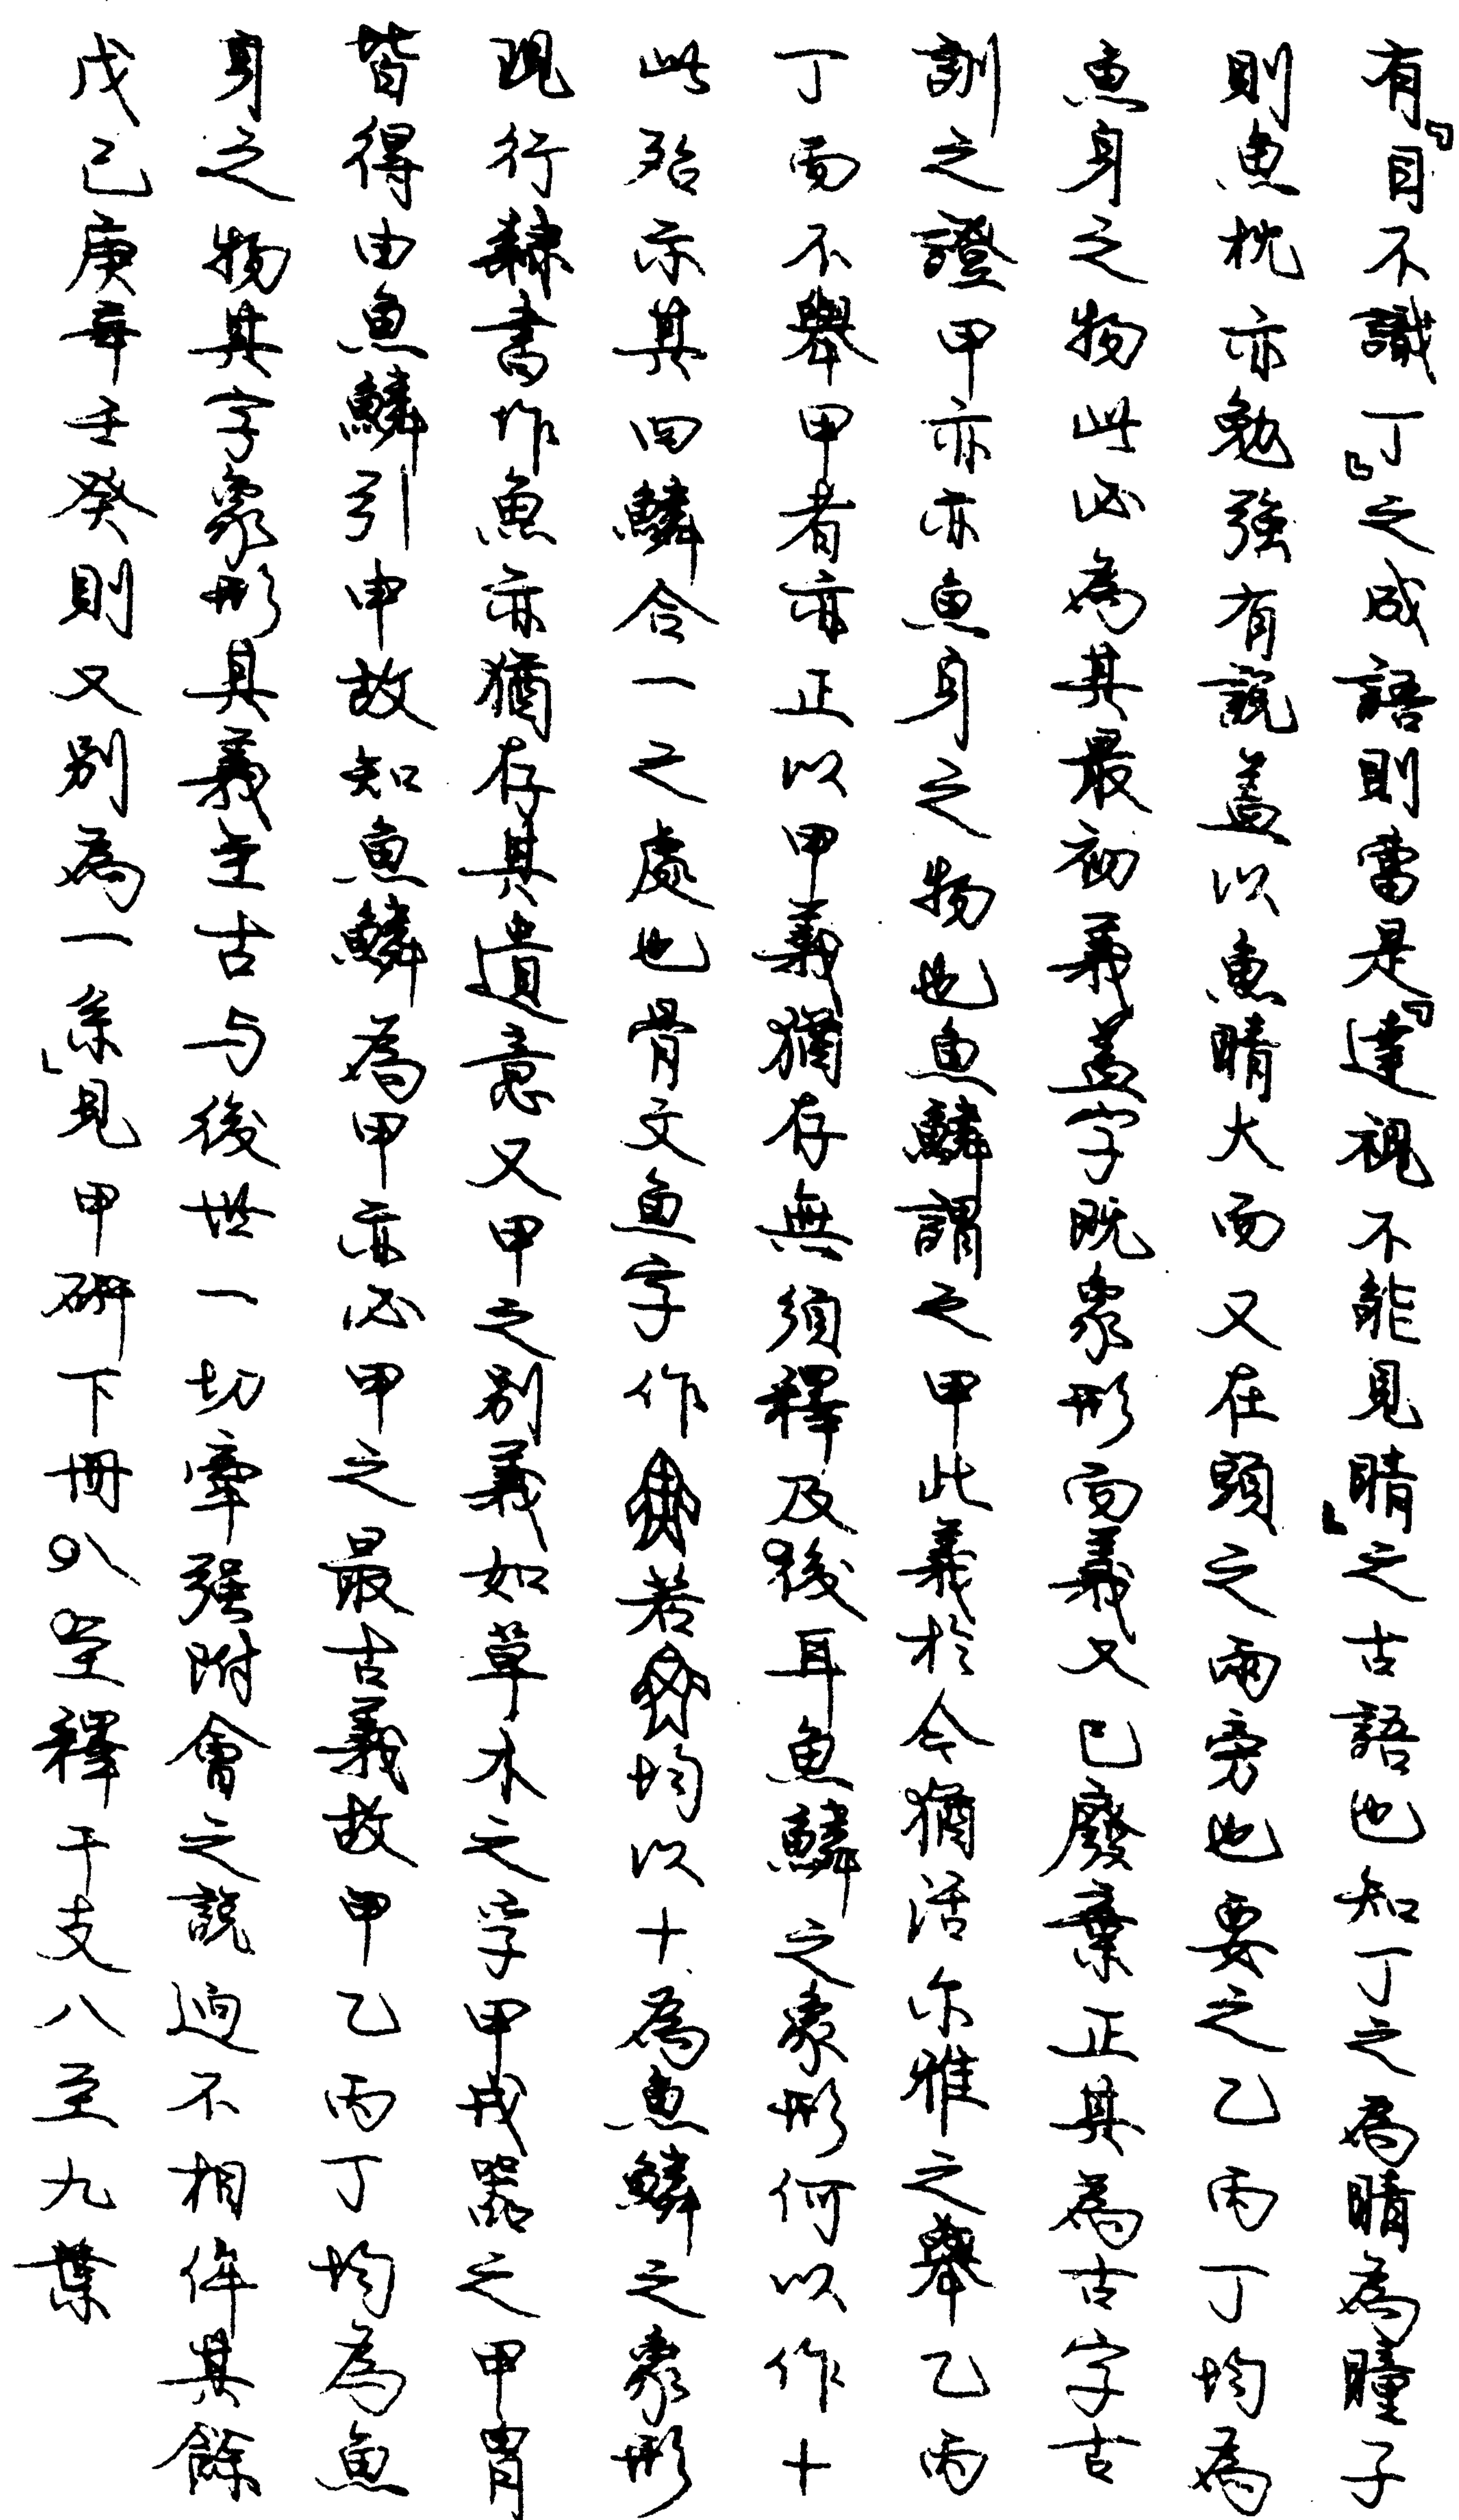 有『目不識丁』之成語則當是『達視不能見睛』之古語也知丁之為睛為瞳子
則魚枕亦勉強有說蓋以魚睛大而又在頭之兩旁也要之乙丙丁均為
魚身之物此必為其最初義蓋字既象形而義又已廢棄正其為古字古
訓之證甲亦亦魚身之物也魚鱗謂之甲此義於今猶活尔雅之舉乙丙
丁而不舉甲者亦正以甲義猶存無須釋及後耳魚鱗之象形何以作十
此殆示其四鱗合一之處也骨文魚字作若均以十為魚鱗之象形
現行隸書作魚亦猶存其遺意又甲之別義如草木之孚甲戎器之甲冑
皆得由魚鱗引申故知魚鱗為甲亦必甲之最古義故甲乙丙丁均為魚
身之物其字象形其義至古与後世一切牽强附會之說迥不相侔其餘
戊己庚辛壬癸則又別為一系」見甲研下冊八至釋干支八至九葉